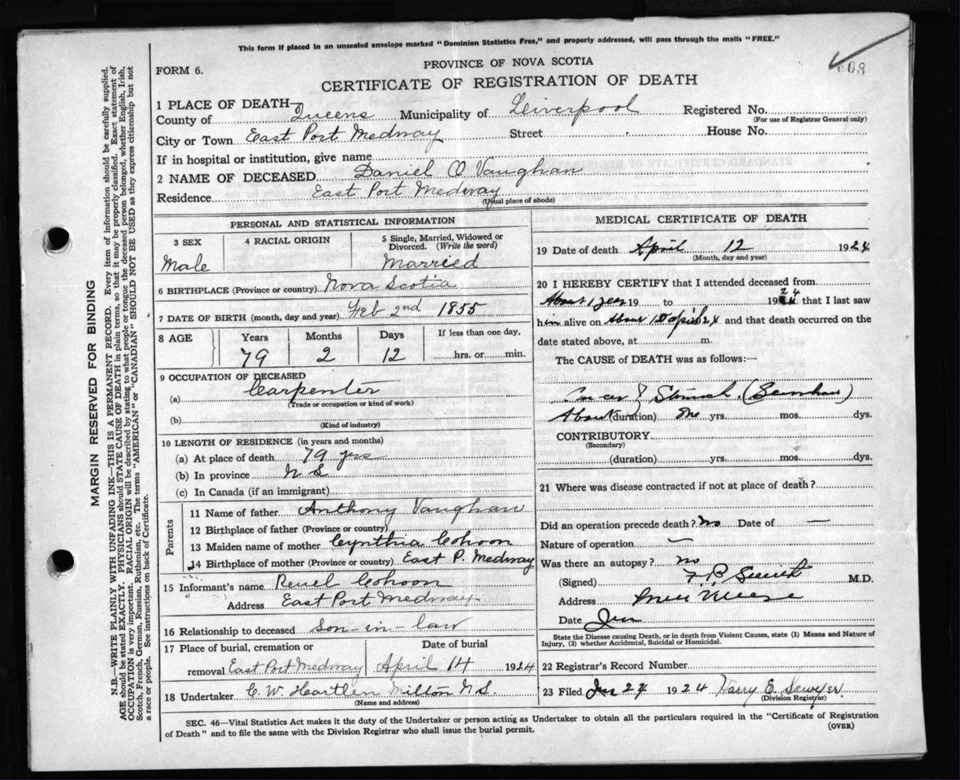 This form if placed in an unsealed envelope marked "Dominion Statistics Free," and properly addressed, will pass through the mails "FREE."
FORM 6.
PROVINCE OF NOVA SCOTIA
CERTIFICATE OF REGISTRATION OF DEATH
1 PLACE OF DEATH—
County of Queens Municipality of Liverpool Registered No.
(For use of Registrar General only)
City or Town East Port Medway Street House No.
If in hospital or institution, give name
2 NAME OF DECEASED Daniel O Vaughan
Residence East Port Medway
(Usual place of abode)
PERSONAL AND STATISTICAL INFORMATION
3 SEX 4 RACIAL ORIGIN 5 Single, Married, Widowed or Divorced. (Write the word)
Male Married
6 BIRTHPLACE (Province or country) Nova Scotia
7 DATE OF BIRTH (month, day and year) Feb 2nd 1855
8 AGE Years Months Days If less than one day,
79 2 12 hrs. or min.
9 OCCUPATION OF DECEASED
(a) Carpenter
(Trade or occupation or kind of work)
(b)
(Kind of industry)
10 LENGTH OF RESIDENCE (in years and months)
(a) At place of death 79 yrs
(b) In province N S
(c) In Canada (if an immigrant)
Parents
11 Name of father Anthony Vaughan
12 Birthplace of father (Province or country)
13 Maiden name of mother Cynthia Cohoon
14 Birthplace of mother (Province or country) East P. Medway
15 Informant's name Reuel Cohoon
Address East Port Medway
16 Relationship to deceased son-in-law
17 Place of burial, cremation or removal Date of burial
East Port Medway April 14 1924
18 Undertaker C. W. Hartlen Milton N.S.
(Name and address)
MEDICAL CERTIFICATE OF DEATH
19 Date of death April 12 1924
(Month, day and year)
20 I HEREBY CERTIFY that I attended deceased from
About 1 year 19 to 1924 that I last saw
him alive on About 10 April 24 and that death occurred on the
date stated above, at m.
The CAUSE of DEATH was as follows:—
Cancer of Stomach
About (duration) One yrs. mos. dys.
CONTRIBUTORY
(Secondary)
(duration) yrs. mos. dys.
21 Where was disease contracted if not at place of death?
Did an operation precede death? no Date of —
Nature of operation —
Was there an autopsy? no
(Signed) M.D.
Address
Date
State the Disease causing Death, or in death from Violent Causes, state (1) Means and Nature of Injury, (2) whether Accidental, Suicidal or Homicidal.
22 Registrar's Record Number
23 Filed 1924 Harry E. Sawyer
(Division Registrar)
SEC. 46—Vital Statistics Act makes it the duty of the Undertaker or person acting as Undertaker to obtain all the particulars required in the "Certificate of Registration
of Death" and to file the same with the Division Registrar who shall issue the burial permit. (OVER)
MARGIN RESERVED FOR BINDING
N.B.—WRITE PLAINLY WITH UNFADING INK—THIS IS A PERMANENT RECORD. Every item of information should be carefully supplied.
AGE should be stated EXACTLY. PHYSICIANS should STATE CAUSE OF DEATH in plain terms, so that it may be properly classified. Exact statement of
OCCUPATION is very important. RACIAL ORIGIN will be described by stating to what people or tongue the deceased person belonged, whether English, Irish,
Scotch, French, German, Russian, Ruthenian, etc. The terms "AMERICAN" or "CANADIAN" SHOULD NOT BE USED as they express citizenship but not
a race or people. See instructions on back of Certificate.